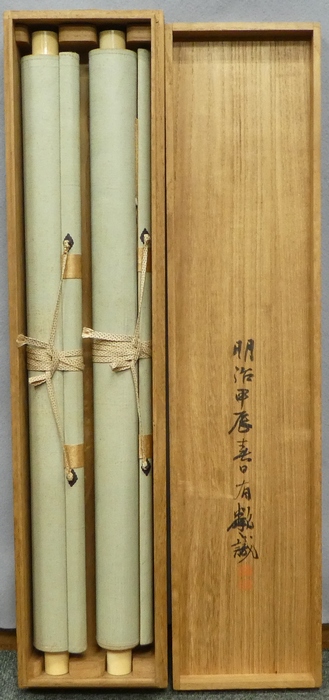 明治甲辰春日有數識